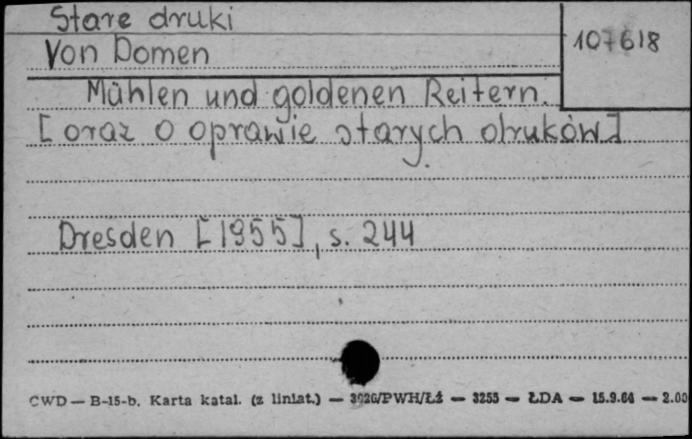 Stare druki
107618
Von Domen
Mühlen und goldenen Reitern.
[oraz o oprawie starych druków]
Dresden [1955], s. 244
CWD — B-15-b. Karta katal. (z liniat.) — 3026/PWH/Łż — 3255 — ŁDA — 15.9.64 — 2.00